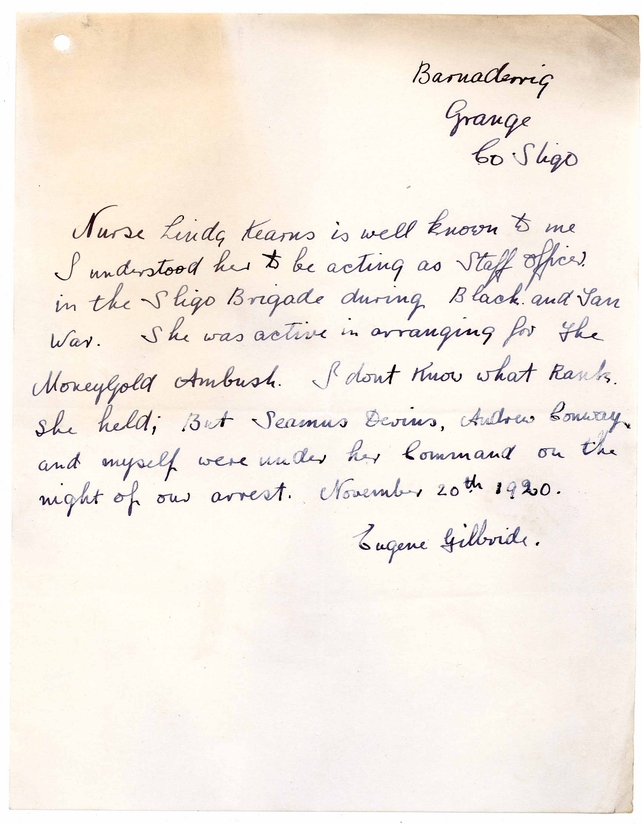 Barnaderrig
Grange
Co Sligo
Nurse Linda Kearns is well known to me
I understood her to be acting as Staff officer.
in the Sligo Brigade during Black and Tan
War. She was active in arranging for the
MoneyGold Ambush. I dont Know what Rank.
She held; But Seamus Devins, Andrew Conway,
and myself were under her Command on the
night of our arrest. November 20th 1920.
Eugene Gilbride.